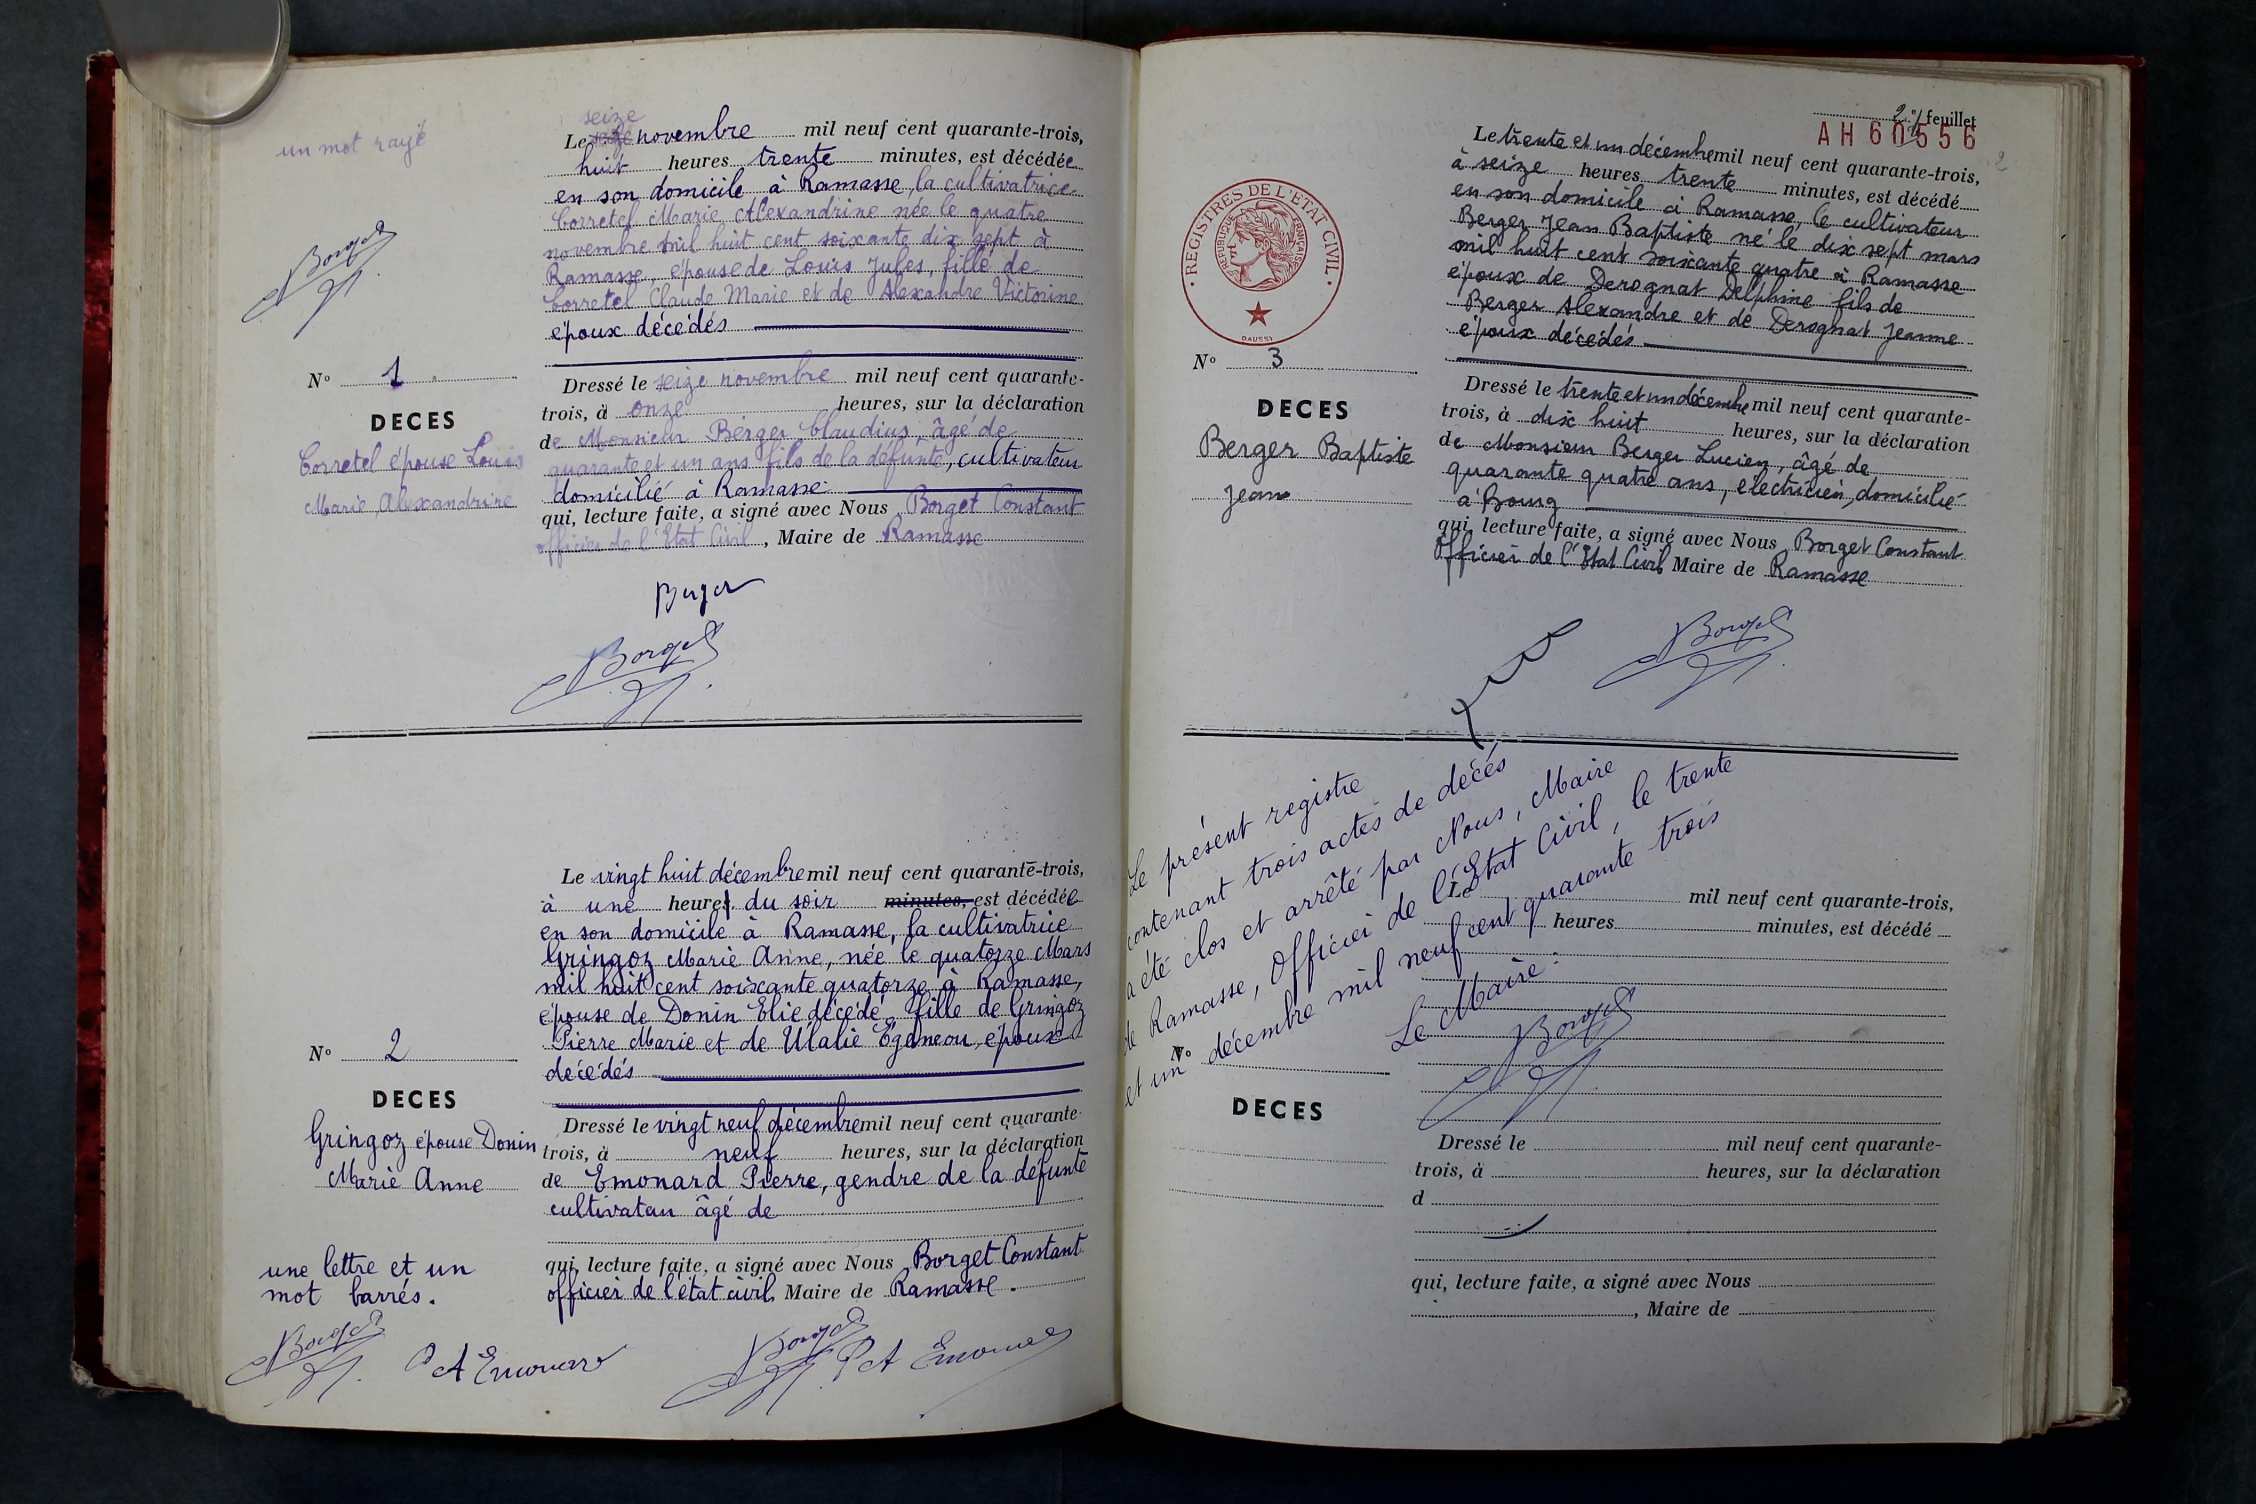 un mot rayé
seize
Le seize novembre mil neuf cent quarante-trois,
huit heures trente minutes, est décédée
en son domicile à Ramasse, la cultivatrice
Corretel Marie Alexandrine née le quatre
novembre mil huit cent soixante dix sept à
Ramasse, épouse de Louis Jules, fille de
Corretel Claude Marie et de Alexandre Victorine
époux décédés
Borget
N° 1
DECES
Corretel épouse Louis
Marie Alexandrine
Dressé le seize novembre mil neuf cent quarante-
trois, à onze heures, sur la déclaration
de Monsieur Berger Claudius, âgé de
quarante et un ans fils de la défunte, cultivateur
domicilié à Ramasse
qui, lecture faite, a signé avec Nous Borget Constant
officier de l'Etat Civil, Maire de Ramasse
Berger
Borget
Le vingt huit décembre mil neuf cent quarante-trois,
à une heures du soir minutes, est décédée
en son domicile à Ramasse, la cultivatrice
Gringoz Marie Anne, née le quatorze Mars
mil huit cent soixante quatorze à Ramasse,
épouse de Donin Elie décédé, fille de Gringoz
Pierre Marie et de Ulalie Egomeou, époux
décédés
N° 2
DECES
Gringoz épouse Donin
Marie Anne
Dressé le vingt neuf décembre mil neuf cent quarante-
trois, à neuf heures, sur la déclaration
de Emonard Pierre, gendre de la défunte
cultivateu âgé de
qui, lecture faite, a signé avec Nous Borget Constant
officier de l'état civil, Maire de Ramasse.
une lettre et un
mot barrés.
Borget
P A Emonard
Borget
P A Emonard
2e feuillet
AH 60556
2
REGISTRES DE L'ETAT CIVIL
REPUBLIQUE FRANÇAISE
DAUSSY
Le trente et un décembre mil neuf cent quarante-trois,
à seize heures trente minutes, est décédé
en son domicile à Ramasse, le cultivateur
Berger Jean Baptiste né le dix sept mars
mil huit cent soixante quatre à Ramasse
époux de Derognat Delphine fils de
Berger Alexandre et de Derognat Jeanne
époux décédés
N° 3
DECES
Berger Baptiste
Jean
Dressé le trente et un décembre mil neuf cent quarante-
trois, à dix huit heures, sur la déclaration
de Monsieur Berger Lucien, âgé de
quarante quatre ans, electricien, domicilié
à Bourg
qui, lecture faite, a signé avec Nous Borget Constant
Officier de l'Etat Civil Maire de Ramasse
Borget
Le présent registre
contenant trois actes de décés
a été clos et arrêté par Nous, Maire
de Ramasse, Officier de l'Etat Civil, le trente
et un décembre mil neuf cent quarante trois
Le Maire :
Borget
mil neuf cent quarante-trois,
heures minutes, est décédé
N°
DECES
Dressé le mil neuf cent quarante-
trois, à heures, sur la déclaration
d
qui, lecture faite, a signé avec Nous
, Maire de